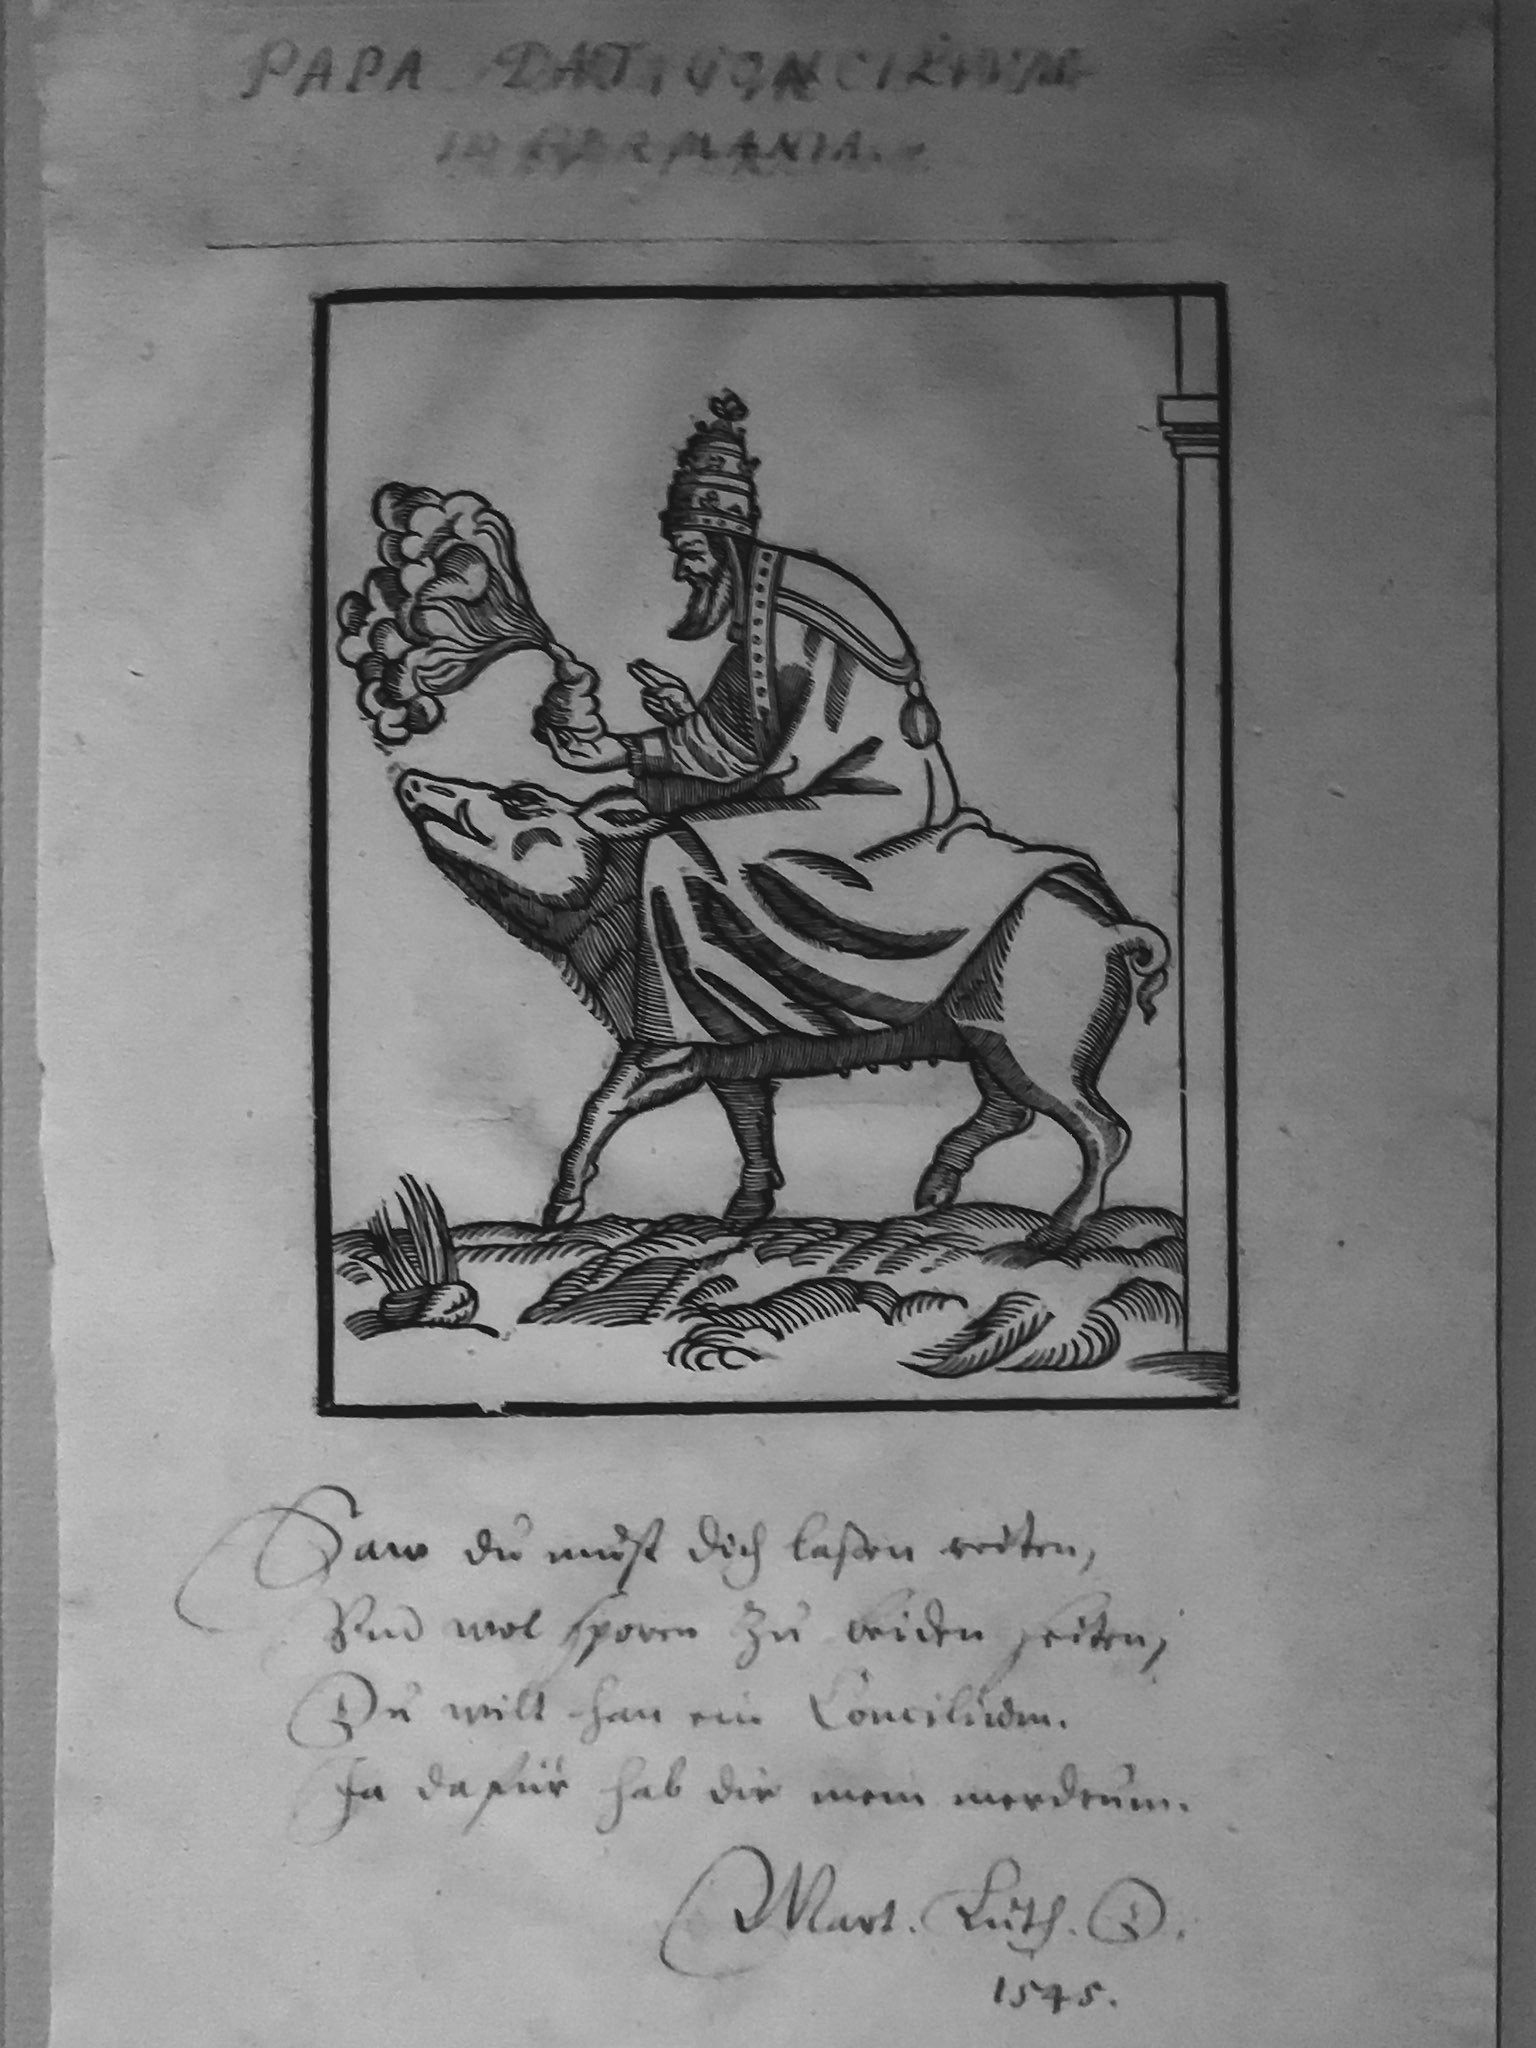 PAPA DAT CONCILIVM
IN GERMANIA.
Saw du must dich laßen reiten,
Vnd wol sporen zu beiden seiten,
Du wilt han ein Concilium.
Ja dafür hab dir mein merdrum.
Mart. Luth. D.
1545.